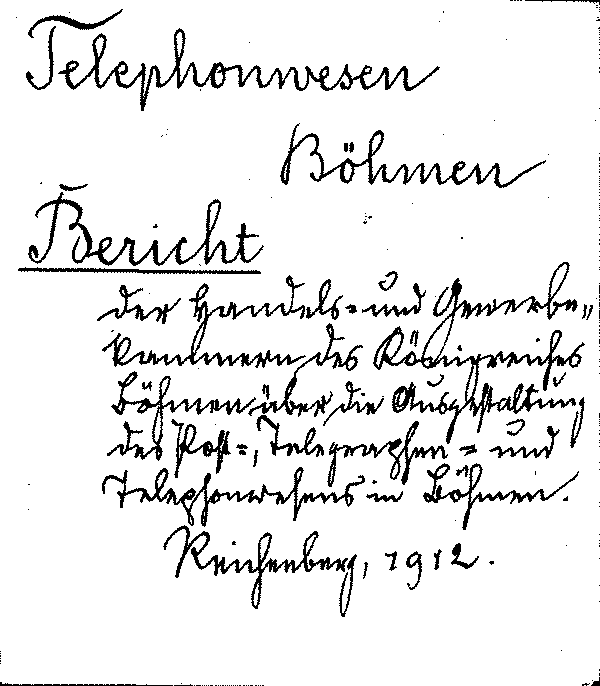 Telephonwesen
Böhmen
Bericht
der Handels- und Gewerbe-
kammern des Königreiches
Böhmen über die Ausgestaltung
des Post-, Telegraphen- und
Telephonwesens in Böhmen.
Reichenberg, 1912.